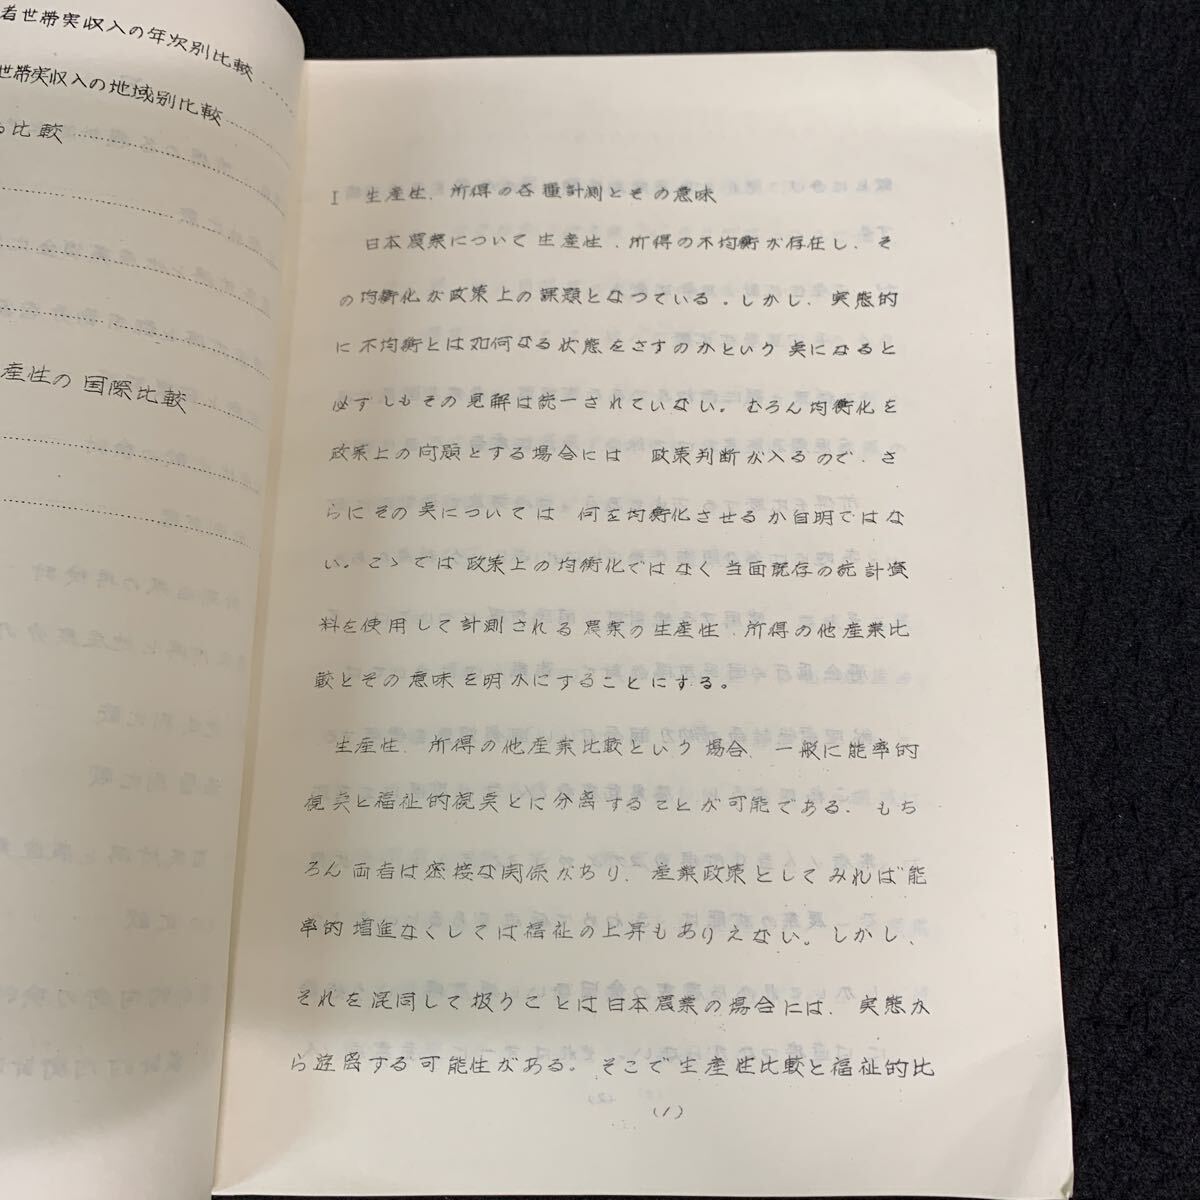 者世帯実収入の年次別比較
世帯実収入の地域別比較
る比較
産性の国際比較
I 生産性、所得の各種計測とその意味
日本農業について生産性、所得の不均衡が存在し、そ
の均衡化が政策上の課題となつている。しかし、実態的
に不均衡とは如何なる状態をさすのかという点になると
必ずしもその見解は統一されていない。むろん均衡化を
政策上の問題とする場合には 政策判断が入るので、さ
らにその点については 何を均衡化させるか自明ではな
い。こゝでは政策上の均衡化ではなく当面既存の統計資
料を使用して計測される農業の生産性、所得の他産業比
較とその意味を明かにすることにする。
生産性、所得の他産業比較という場合、一般に能率的
視点と福祉的視点とに分離することが可能である。もち
ろん両者は密接な関係があり、産業政策としてみれば能
率的増進なくしては福祉の上昇もありえない。しかし、
それを混同して扱うことは日本農業の場合には、実態か
ら遊離する可能性がある。そこで生産性比較と福祉的比
(1)